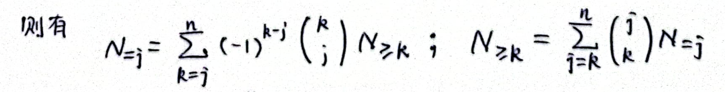 则有 N₌ⱼ = ∑_{k=j}^{n} (-1)^{k-j} \binom{k}{j} N_{≥k} ; N_{≥k} = ∑_{j=k}^{n} \binom{j}{k} N₌ⱼ